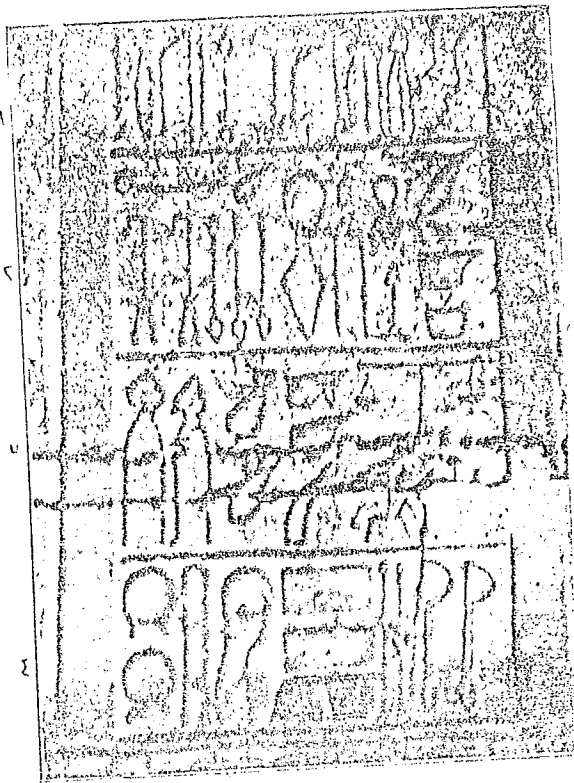 ١
٢
٣
٤